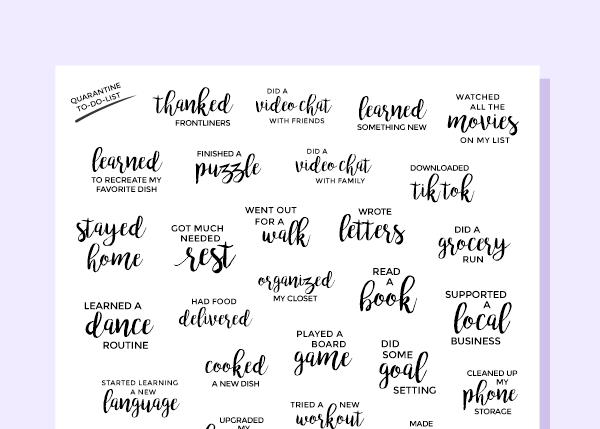 QUARANTINE
TO-DO-LIST
thanked
FRONTLINERS
DID A
video chat
WITH FRIENDS
learned
SOMETHING NEW
WATCHED
ALL THE
movies
ON MY LIST
learned
TO RECREATE MY
FAVORITE DISH
FINISHED A
puzzle
DID A
video chat
WITH FAMILY
DOWNLOADED
tik tok
stayed
home
GOT MUCH
NEEDED
rest
WENT OUT
FOR A
walk
WROTE
letters
DID A
grocery
RUN
organized
MY CLOSET
READ
A
book
LEARNED A
dance
ROUTINE
HAD FOOD
delivered
SUPPORTED
A
local
BUSINESS
PLAYED A
BOARD
game
DID
SOME
goal
SETTING
cooked
A NEW DISH
CLEANED UP
MY
phone
STORAGE
STARTED LEARNING
A NEW
language
UPGRADED
MY
TRIED A NEW
workout
MADE